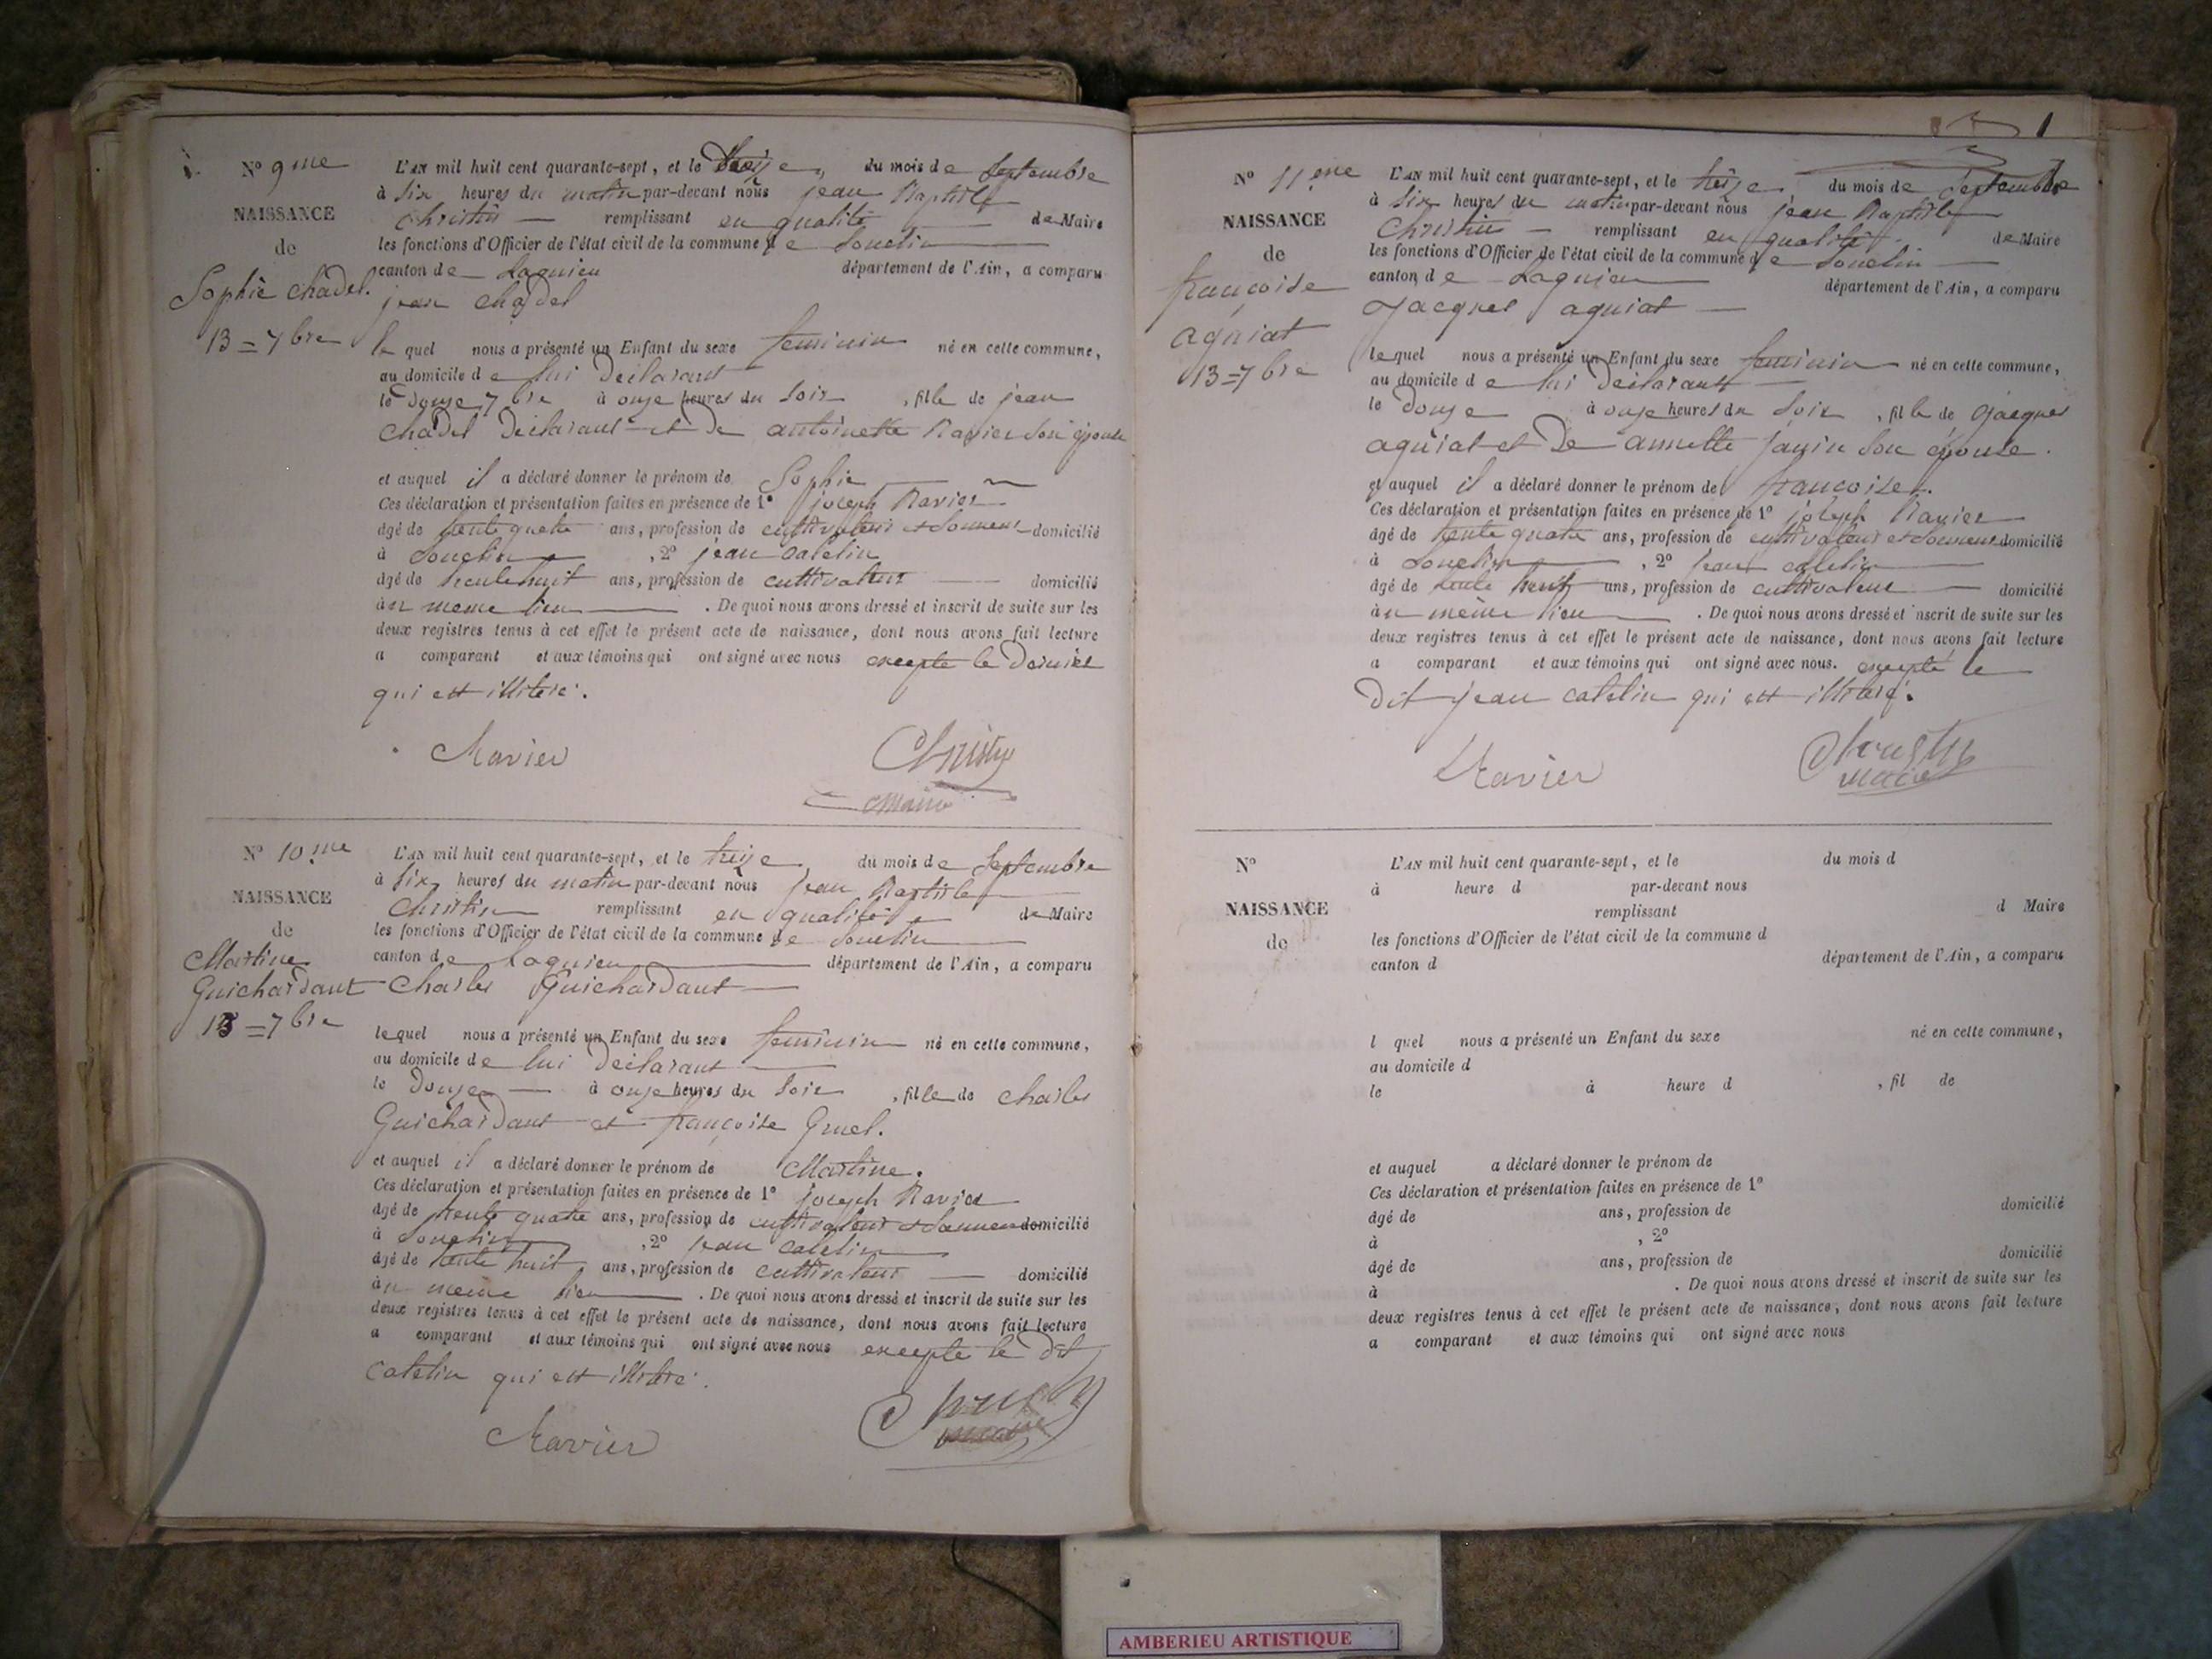 N° 9me
NAISSANCE
de
Sophie chadel.
13 = 7bre
L'AN mil huit cent quarante-sept, et le treize du mois de Septembre
à six heures du matin par-devant nous jean Baptiste
Christin remplissant en qualité de Maire
les fonctions d'Officier de l'état civil de la commune de Souclin
canton de Lagnieu département de l'Ain, a comparu
jean chadel
le quel nous a présenté un Enfant du sexe feminin né en cette commune,
au domicile de lui declarant
le douze 7bre à onze heures du soir, fille de jean
chadel declarant et de antoinette Ravier son épouse
et auquel il a déclaré donner le prénom de Sophie
Ces déclaration et présentation faites en présence de 1° joseph Ravier
âgé de trente quatre ans, profession de cultivateur et sonneur domicilié
à Souclin, 2° jean catelin
âgé de trente huit ans, profession de cultivateur domicilié
au meme lieu. De quoi nous avons dressé et inscrit de suite sur les
deux registres tenus à cet effet le présent acte de naissance, dont nous avons fait lecture
a comparant et aux témoins qui ont signé avec nous excepte le dernier
qui est illiteré.
Ravier
Christin
Maire
N° 10me
NAISSANCE
de
Martine
Guichardant
13 = 7bre
L'AN mil huit cent quarante-sept, et le treize du mois de Septembre
à six heures du matin par-devant nous jean Baptiste
Christin remplissant en qualité de Maire
les fonctions d'Officier de l'état civil de la commune de Souclin
canton de Lagnieu département de l'Ain, a comparu
Charles Guichardant
le quel nous a présenté un Enfant du sexe feminin né en cette commune,
au domicile de lui declarant
le douze à onze heures du soir, fille de Charles
Guichardant et françoise Gruel.
et auquel il a déclaré donner le prénom de Martine.
Ces déclaration et présentation faites en présence de 1° joseph Ravier
âgé de trente quatre ans, profession de cultivateur et sonneur domicilié
à Souclin, 2° jean catelin
âgé de trente huit ans, profession de cultivateur domicilié
au meme lieu. De quoi nous avons dressé et inscrit de suite sur les
deux registres tenus à cet effet le présent acte de naissance, dont nous avons fait lecture
a comparant et aux témoins qui ont signé avec nous excepte le dit
catelin qui est illiteré.
Ravier
Christin
maire
1
N° 11eme
NAISSANCE
de
françoise
aguiat
13 = 7bre
L'AN mil huit cent quarante-sept, et le treize du mois de Septembre
à six heures du matin par-devant nous jean Baptiste
Christin remplissant en qualité de Maire
les fonctions d'Officier de l'état civil de la commune de Souclin
canton de Lagnieu département de l'Ain, a comparu
Jacques aguiat
le quel nous a présenté un Enfant du sexe feminin né en cette commune,
au domicile de lui declarant
le douze à onze heures du soir, fille de Jacques
aguiat et de annette janin son épouse.
et auquel il a déclaré donner le prénom de françoise.
Ces déclaration et présentation faites en présence de 1° joseph Ravier
âgé de trente quatre ans, profession de cultivateur et sonneur domicilié
à Souclin, 2° jean catelin
âgé de trente huit ans, profession de cultivateur domicilié
au même lieu. De quoi nous avons dressé et inscrit de suite sur les
deux registres tenus à cet effet le présent acte de naissance, dont nous avons fait lecture
a comparant et aux témoins qui ont signé avec nous. excepté le
dit jean catelin qui est illiteré.
Ravier
Christin
maire
N°
NAISSANCE
de
L'AN mil huit cent quarante-sept, et le du mois d
à heure d par-devant nous
remplissant d Maire
les fonctions d'Officier de l'état civil de la commune d
canton d département de l'Ain, a comparu
l quel nous a présenté un Enfant du sexe né en cette commune,
au domicile d
le à heure d , fil de
et auquel a déclaré donner le prénom de
Ces déclaration et présentation faites en présence de 1°
âgé de ans, profession de domicilié
à , 2°
âgé de ans, profession de domicilié
à . De quoi nous avons dressé et inscrit de suite sur les
deux registres tenus à cet effet le présent acte de naissance, dont nous avons fait lecture
a comparant et aux témoins qui ont signé avec nous
AMBERIEU ARTISTIQUE